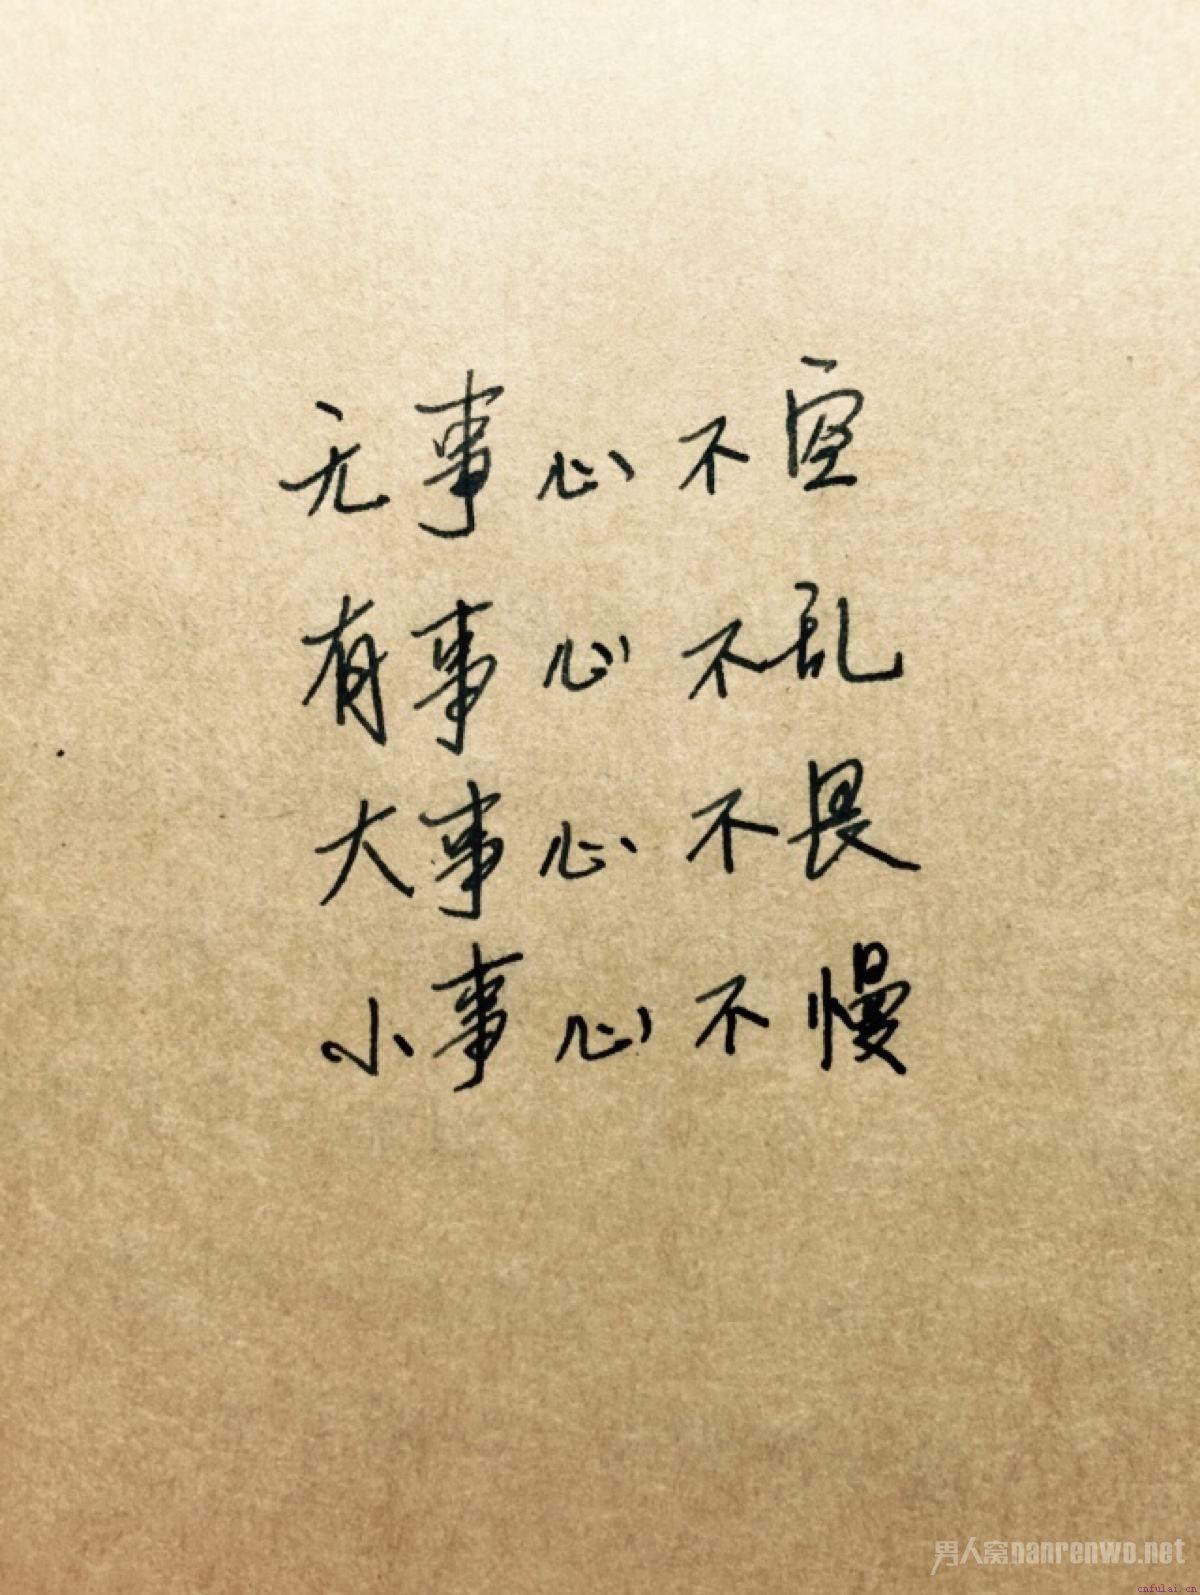 无事心不空
有事心不乱
大事心不畏
小事心不慢
男人窝nanrenwo.net
cnfulai.cn